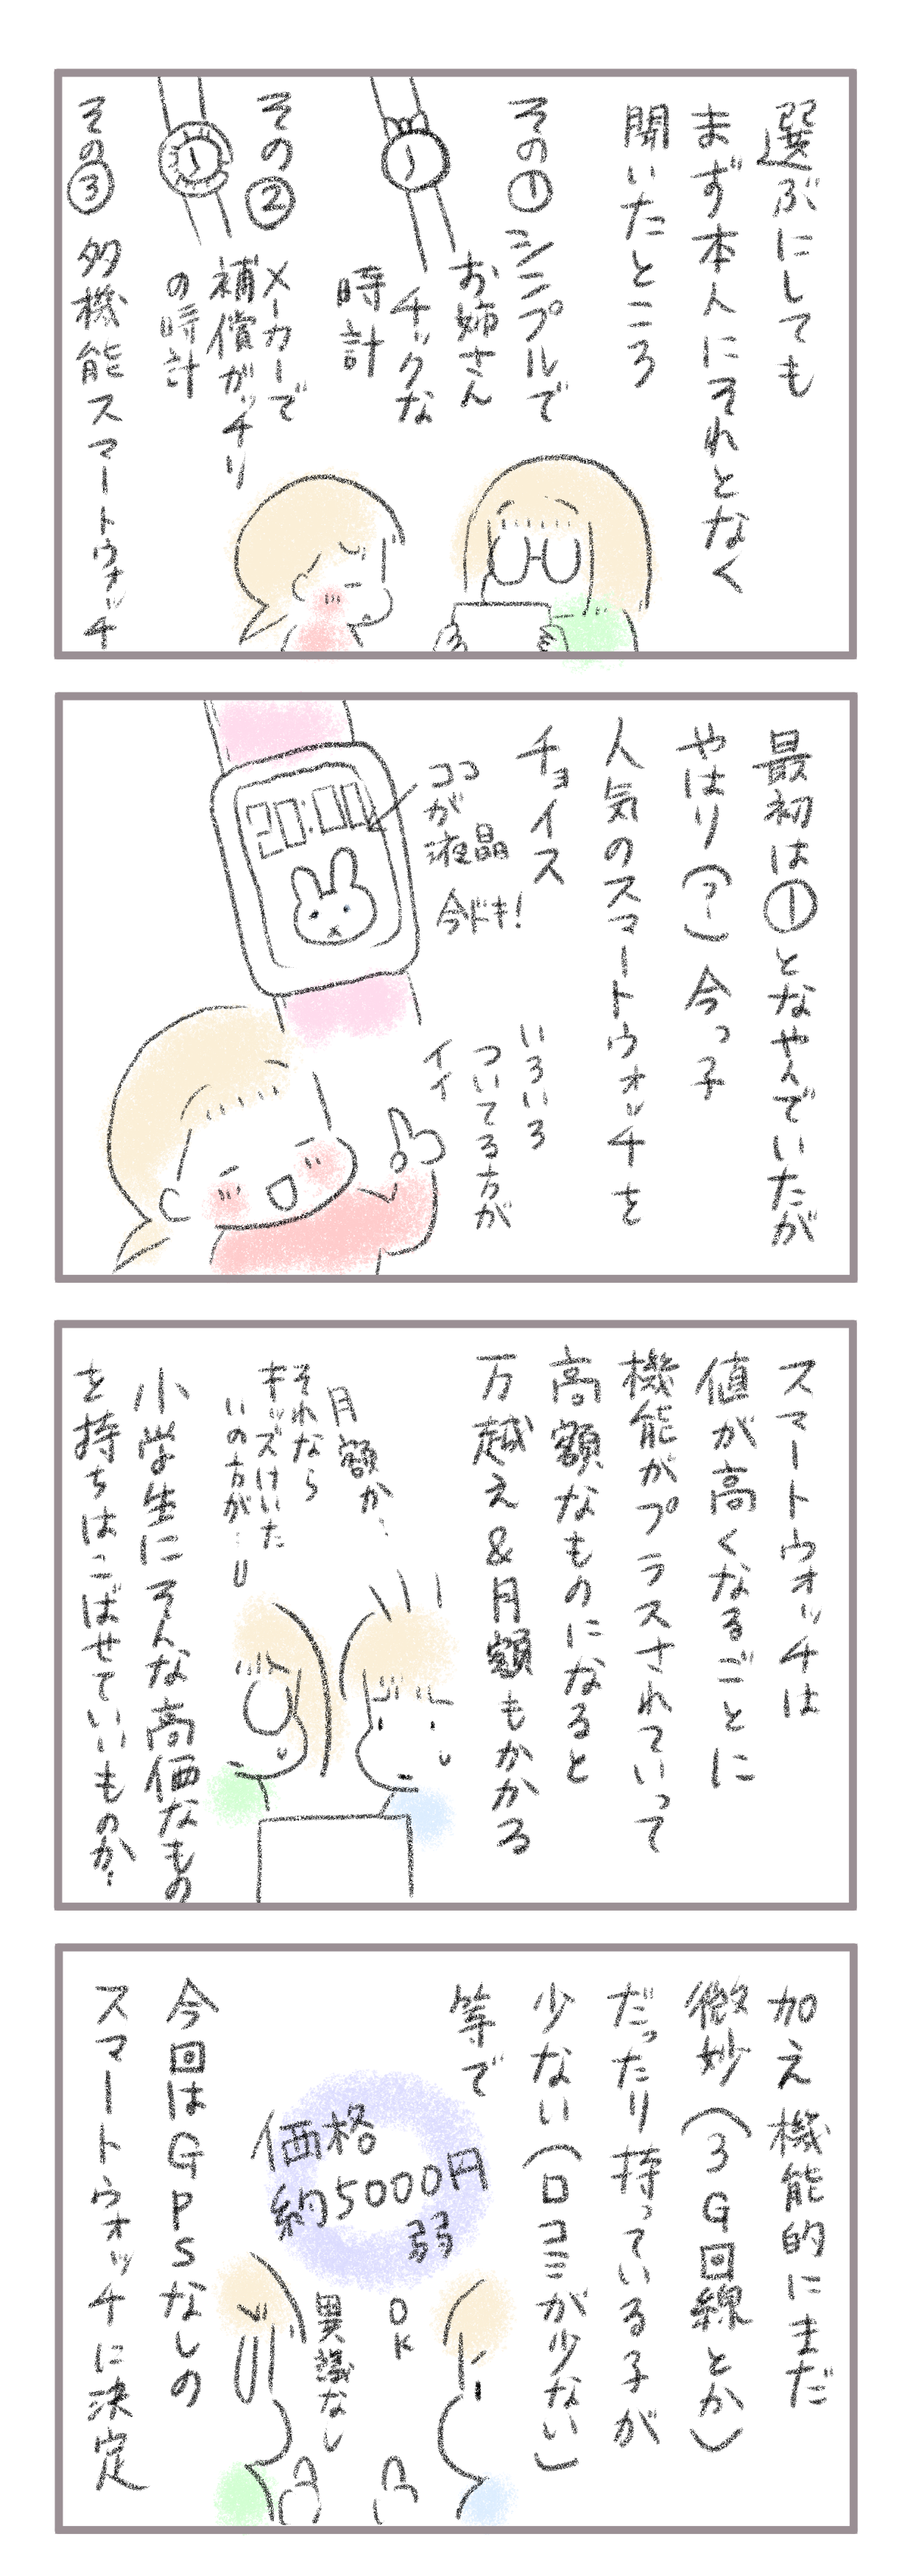 選ぶにしても
まず本人にそれとなく
聞いたところ
その①シンプルで
お姉さん
チックな
時計
その②
メーカーで
補償がッチリ
の時計
その③ 多機能スマートウォッチ
最初は①となやんでいたが
やはり(?)今っ子
人気のスマートウォッチを
チョイス
ココ
が
液晶
今ドキ!
いろいろ
ついてる方が
イイ
スマートウォッチは
値が高くなるごとに
機能がプラスされていって
高額なものになると
万越え&月額もかかる
月額か…
それなら
キッズけいた
いの方が…
小学生にそんな高価なもの
を持ちはこばせていいものか…
加え機能的にまだ
微妙(3G回線とか)
だったり持っている子が
少ない(口コミが少ない)
等で
価格
約5000円
弱
OK
異議なし
今回はGPSなしの
スマートウォッチに決定